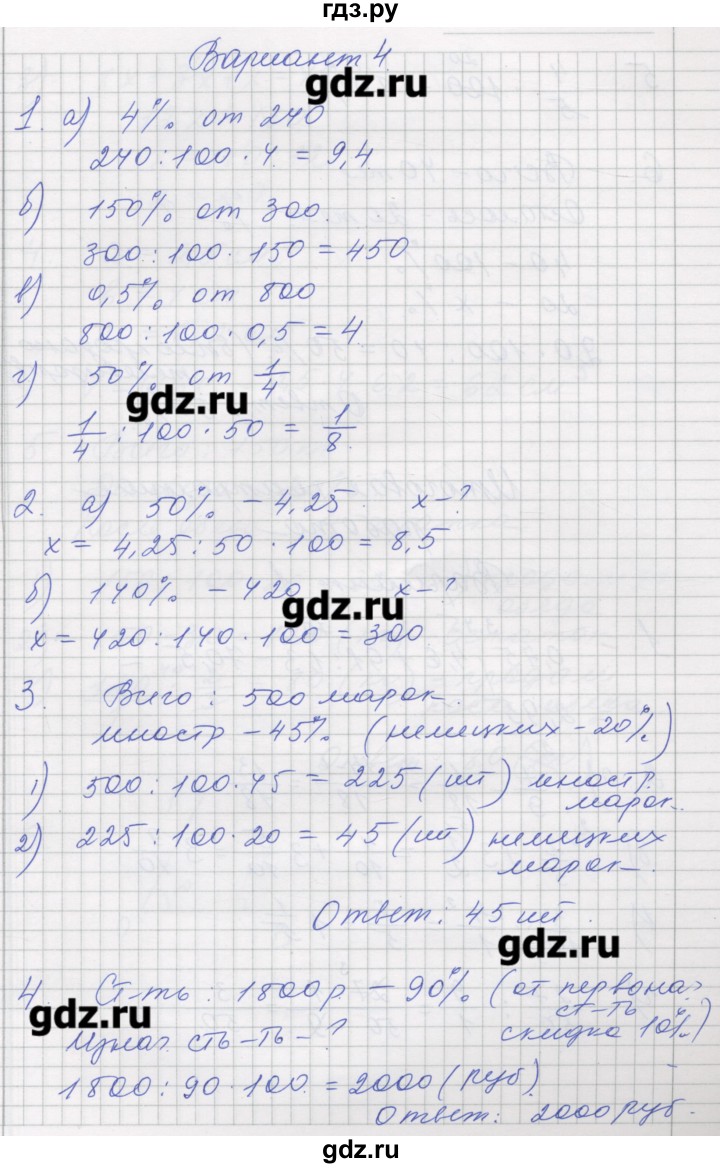 гдз.ру
Вариант 4.
gdz.ru
1. а) 4% от 240
240 : 100 · 4 = 9,4
б) 150% от 300.
300 : 100 · 150 = 450
в) 0,5% от 800
800 : 100 · 0,5 = 4
г) 50% от 1/4
gdz.ru
1/4 : 100 · 50 = 1/8
2. а) 50% - 4,25 х - ?
х = 4,25 : 50 · 100 = 8,5
б) 140% - 420 х - ?
gdz.ru
х = 420 : 140 · 100 = 300
3. Всего : 500 марок.
иностр - 45% (немецких - 20%)
1) 500 : 100 · 45 = 225 (шт) иностр. марок.
2) 225 : 100 · 20 = 45 (шт) немецких марок.
Ответ: 45 шт.
gdz.ru
4. Ст-ть : 1800 р - 90% (от первонач. ст-ть
gdz.ru
скидка 10%)
Изнач. сть-ть - ?
1800 : 90 · 100 = 2000 (руб)
Ответ: 2000 руб.
gdz.ru